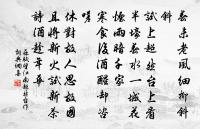 春未老風細柳斜
斜
試上超然台上看
半壕春水一城花
煙雨暗千家
寒食後酒醒卻咨
嗟
休對故人思故國
且將新火試新茶
詩酒趁年華
蘇軾望江南超然台作